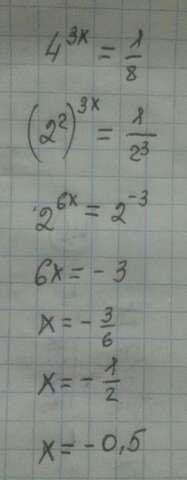 4^{3x} = \frac{1}{8}
(2^2)^{3x} = \frac{1}{2^3}
2^{6x} = 2^{-3}
6x = -3
x = -\frac{3}{6}
x = -\frac{1}{2}
x = -0,5